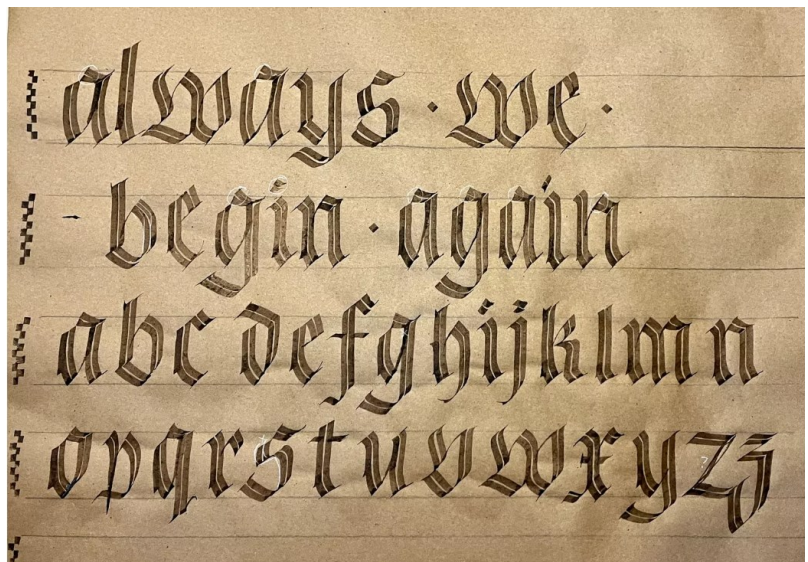 always · we ·
begin · again
abc defghijklmn
opqrstuvwxyzz
?